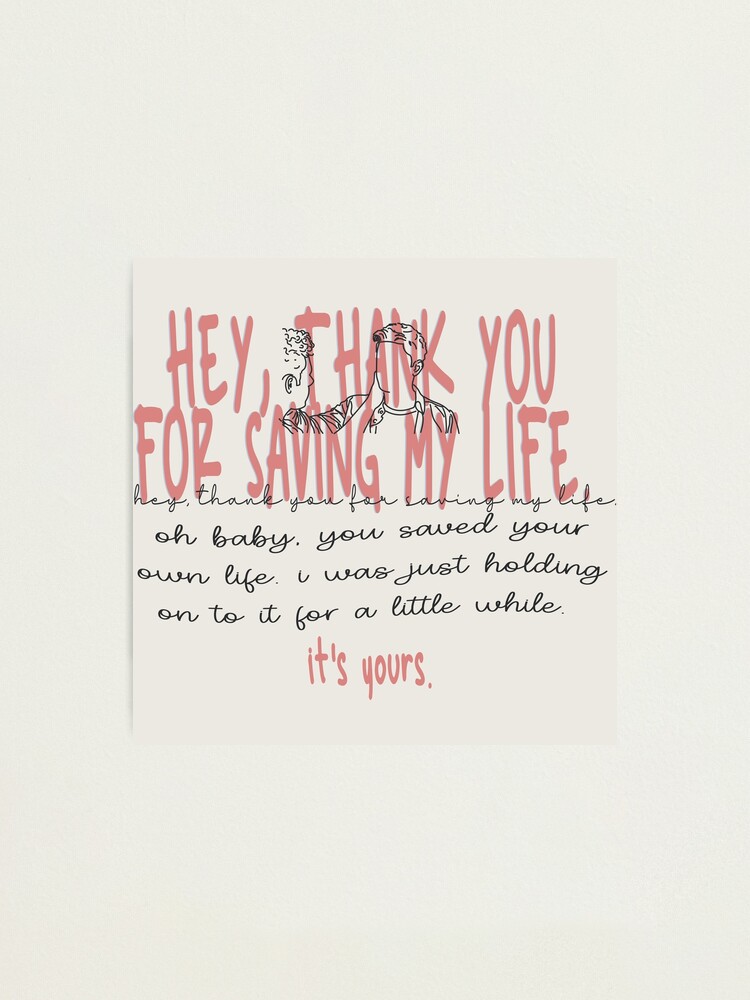 HEY, THANK YOU
FOR SAVING MY LIFE.
hey, thank you for saving my life.
oh baby, you saved your
own life. i was just holding
on to it for a little while.
it's yours.